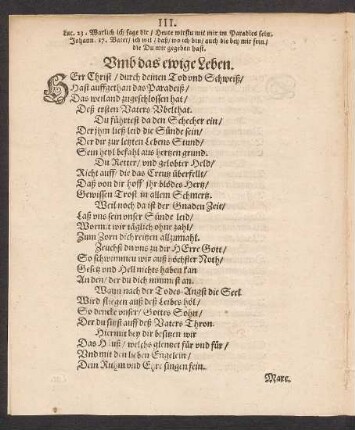 III.
Luc. 23. Warlich ich sage dir / Heute wirstu mit mir im Paradies sein.
Johann. 17. Vater / ich wil / daß / wo ich bin / auch die bey mir sein /
die Du mir gegeben hast.
Vmb das ewige Leben.
HErr Christ / durch deinen Tod vnd Schweiß /
Hast auffgethan das Paradeiß /
Das weiland zugeschlossen hat /
Deß ersten Vaters Vbelthat.
Du führtest da den Schecher ein /
Der jhm ließ leid die Sünde sein /
Der dir zur letzten Lebens Stund /
Sein heyl befahl aus hertzen grund.
Du Retter / vnd gelobter Held /
Richt auff die das Creutz überfellt /
Daß von dir hoff jhr blödes Hertz /
Gewissen Trost in allem Schmertz.
Weil noch da ist der Gnaden Zeit /
Laß vns sein vnser Sünde leid /
Womit wir täglich ohne zahl /
Zum Zorn dich reitzen allzumahl.
Zeuchst du vns zu dir HErre Gott /
So schwimmen wir auß höchster Noth /
Gesetz vnd Hell nichts haben kan
An den / der du dich nimmst an.
Wann nach der Todes-Angst die Seel
Wird fliegen auß deß Leibes höl /
So dencke vnser / Gottes Sohn /
Der du sitzst auff deß Vaters Thron.
Hiermit bey dir besitzen wir
Das Hauß / welchs glentzet für vnd für /
Vnd mit den lieben Engelein /
Dein Ruhm vnd Ehre singen fein.
Marc.